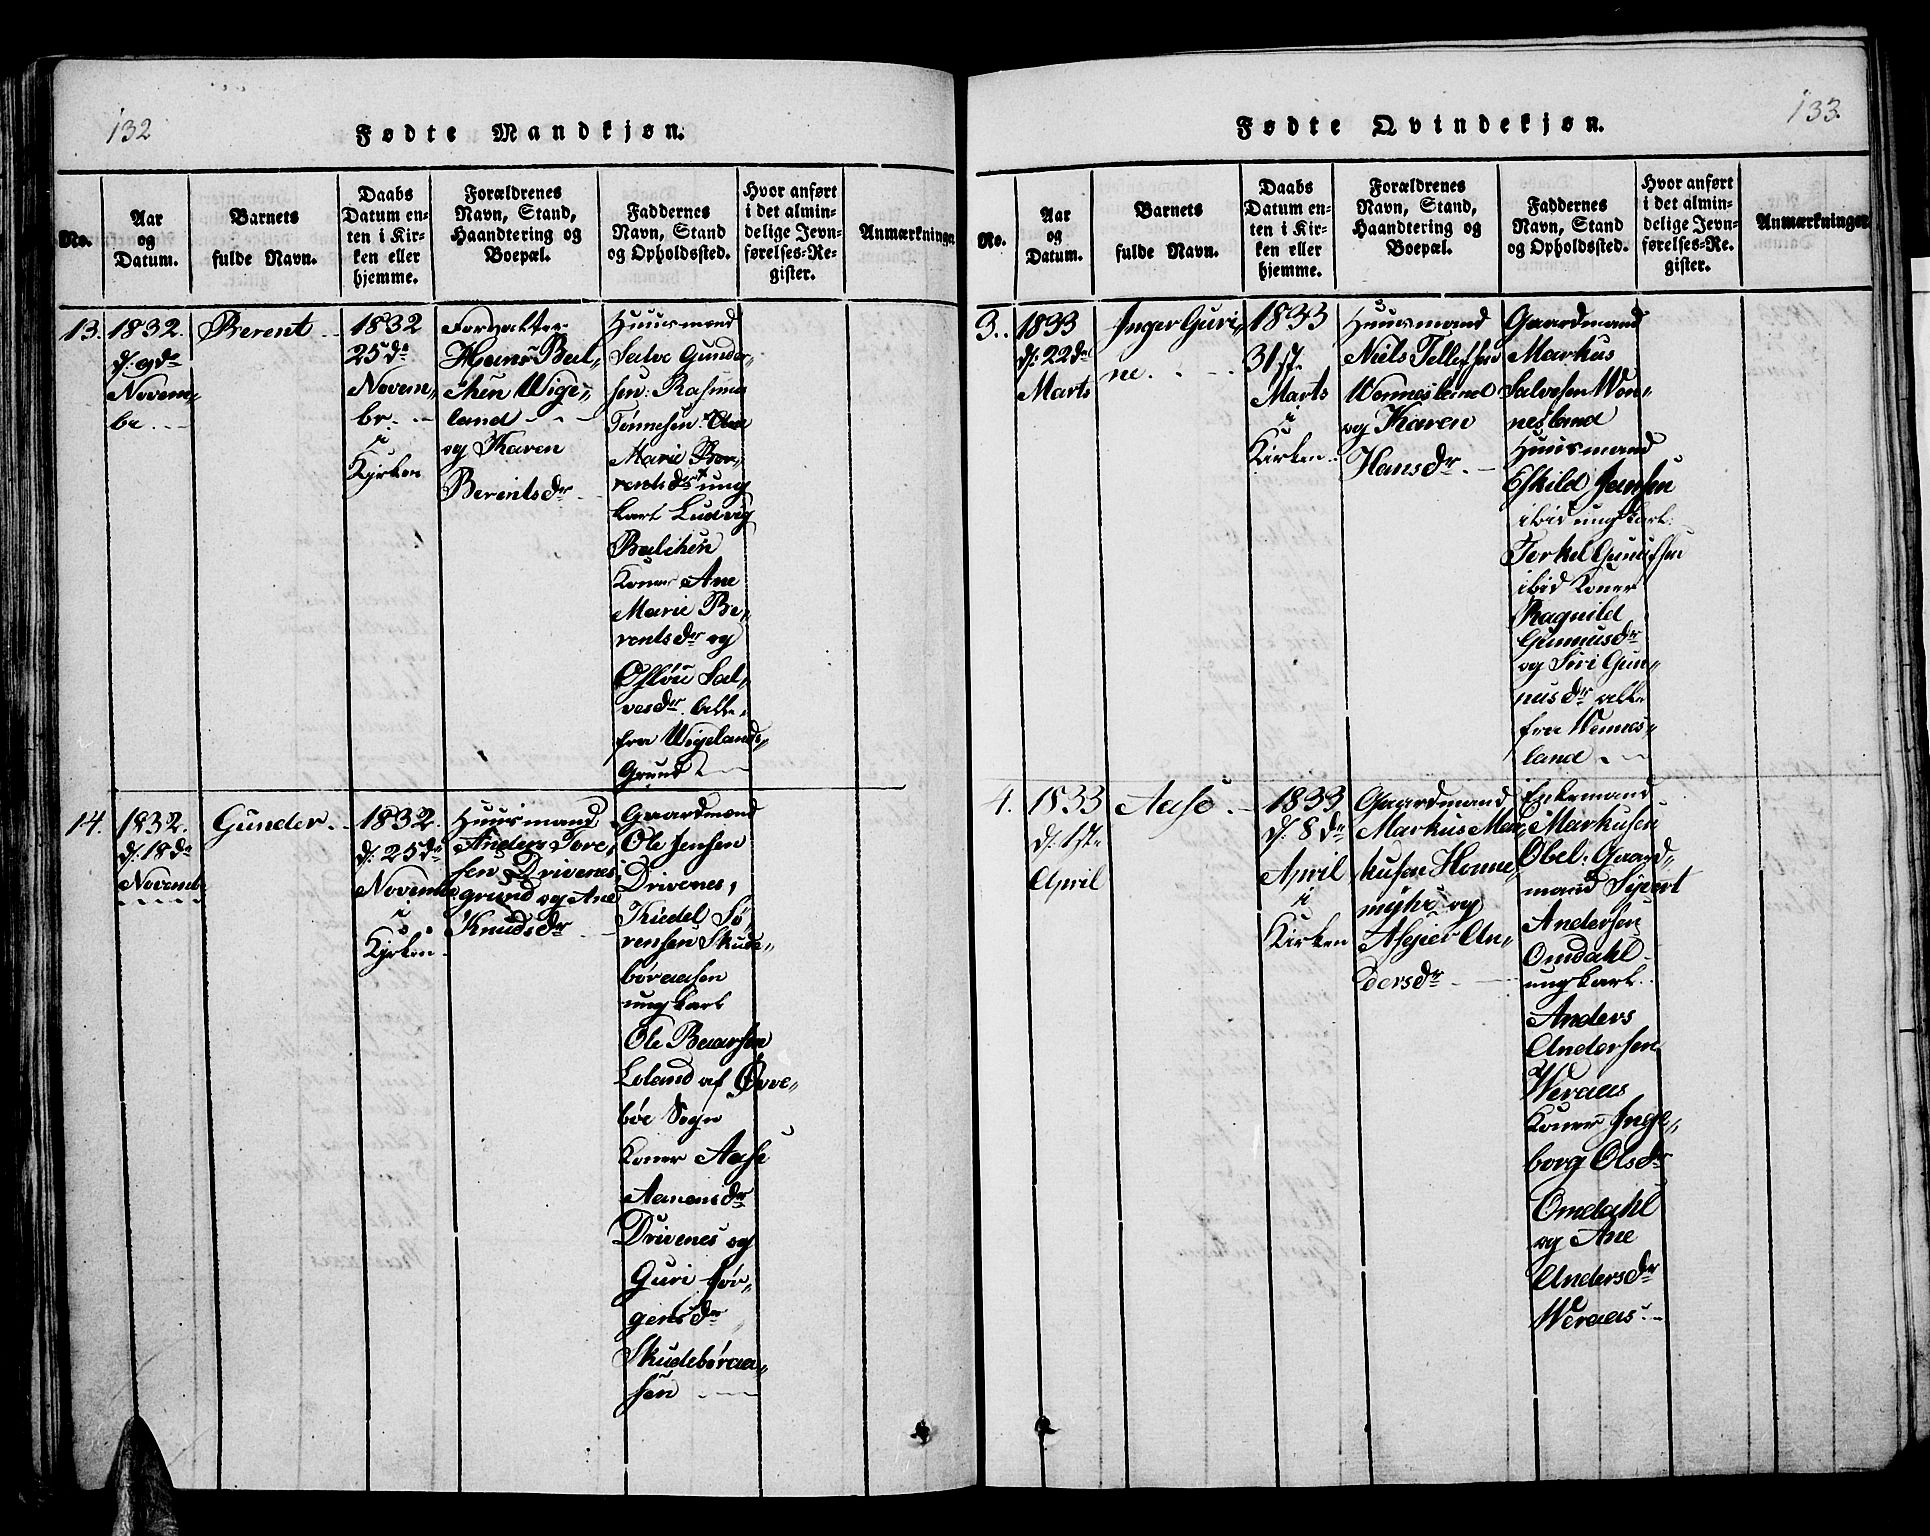 132
Fødte Mandkjøn.
No.
Aar
og
Datum.
Barnets
fulde Navn.
Daabs
Datum en-
ten i Kir-
ken eller
hjemme.
Forældrenes
Navn, Stand,
Haandtering og
Boepæl.
Faddernes
Navn, Stand
og Opholdssted.
Hvor anført
i det almin-
delige Jevn-
førelses-Re-
gister.
Anmærkninger
13.
1832.
d: 9de
Novem-
br
Berent
1832
25de
Novem-
br.
i
Kirken
Forvalter
Hans Bal-
chen Wige-
land
og Karen
Berentsdr
Huusmand
Salve Gunder-
sen: Rasmus
Tønnesen Ane
Marie Ber-
rentsdr ung
karl Ludvig
Balchen
Koner Ane
Marie Be-
rentsdr og
Osløu Sal-
vesdr. Alle
fra Wigelands-
Grund
14.
1832.
d: 18de
Novembr
Gunder.
1832.
d: 25de
Novembr
i
Kirken
Huusmand
Anders Tore-
sen Drivenes
grund og Ane
Knudsdr
Gaardmand
Ole Jensen
Drivenes,
Kiedel Sø-
rensen Skude-
børaasen
ungkarl
Ole Bearsen
Loland af Øvve-
bøe Sogn
Koner Aase
Aanensdr
Drivenes og
Guri Jør-
gensdr
Skudebøraa-
sen
133
Fødte Qvindekjøn.
No.
Aar
og
Datum.
Barnets
fulde Navn.
Daabs
Datum en-
ten i Kir-
ken eller
hjemme.
Forældrenes
Navn, Stand,
Haandtering og
Boepæl.
Faddernes
Navn, Stand
og Opholdssted.
Hvor anført
i det almin-
delige Jevn-
førelses-Re-
gister.
Anmærkninger
3.
1833
d: 22de
Marts
Inger Guri-
ne.
1833
31st.
Marts
i
Kirken
Huusmand
Niels Tellefsen
Wennesland
og Karen
Hansdr.
Gaardmand
Markus
Salvesen Wen-
nesland
Huusmand
Eskild Jensen
ibid ungkarl:
Terkel Gunufsen
ibid Koner
Ragnild
Gunnusdr
og Siri Gun-
nusdr alle
fra Wennes-
land
4.
1833
d: 1st.
April
Aase
1833
d: 8de
April
i
Kirken
Gaardmand
Markus Mar-
kusen Honne-
myhr og
Asgier An-
dersdr
Enkemand
Markusen
Obel: Gaard-
mand Sivert
Andersen
Omdahl
ungkarl
Anders
Andersen
Weraas
Koner Inge-
borg Olsdr
Omdahl
og Ane
Andersdr
Weraas